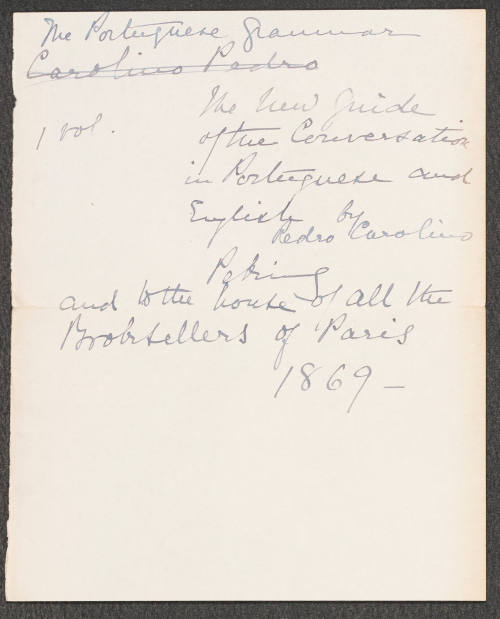 The Portuguese Grammar
Carolino Pedro
The New Guide
1 vol. of the Conversation
in Portuguese and
English by
Pedro Carolino
Peking
and to the house of all the
Booksellers of Paris
1869 –